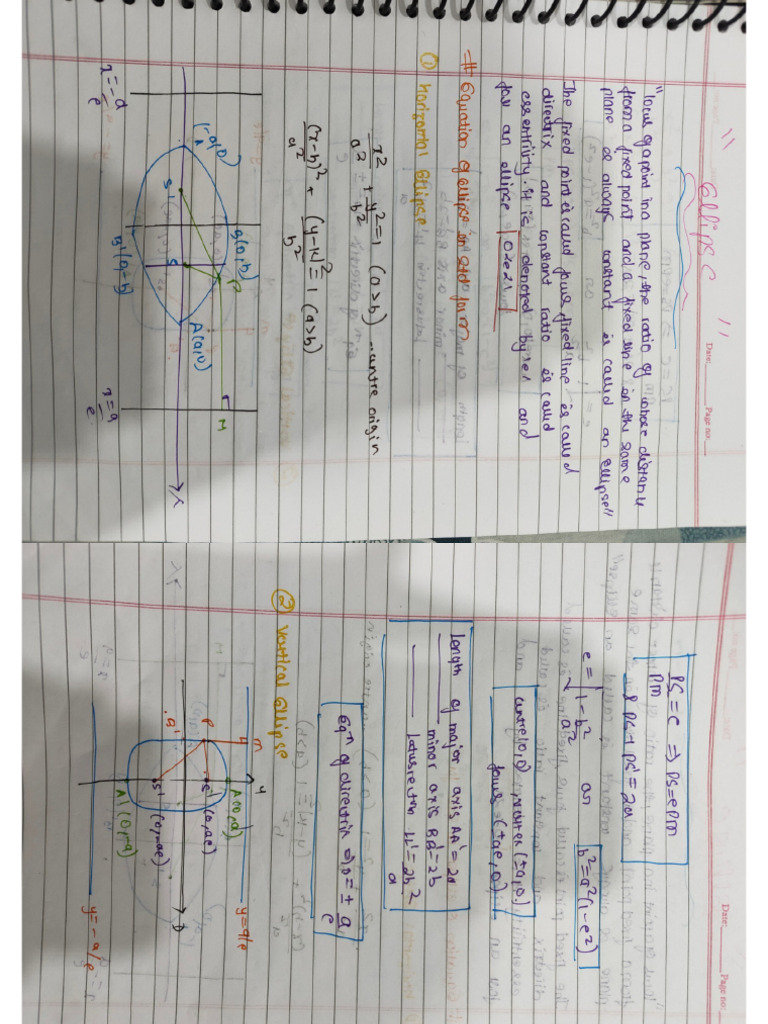 Date:______ Page no:___
" Ellipse "
"locus of a point in a plane, the ratio of whose distance
from a fixed point and a fixed line in the same
plane is always constant is called an ellipse"
The fixed point is called focus fixed line is called
directrix and constant ratio is called
essentricity. It is denoted by e1 and
for an ellipse 0≤e≤1
# Equation of ellipse in std form
① Horizontal Ellipse
x²/a² + y²/b² = 1 (a>b) ..centre origin
(x-h)²/a² + (y-k)²/b² = 1 (a>b)
B(0,b)
P
M
(-a,0)
A'
S'
S
A(a,0)
X
B'(0,-b)
x=-a/e
x=a/e
Date:______ Page no:___
PS/PM = e ⇒ PS=ePM
& PS+PS'=2a
e = √1-b²/a² or b²=a²(1-e²)
centre(0,0), vertex (±a,0)
focus (±ae,0)
length of major axis AA'=2a
______ minor axis BB'=2b
______ latusrectum LL'=2b²/a
Eqⁿ of directrix ⇒ x=± a/e
② Vertical Ellipse
y
m
y=a/e
A(0,a)
P
S(0,ae)
S'(0,-ae)
A'(0,-a)
y=-a/e